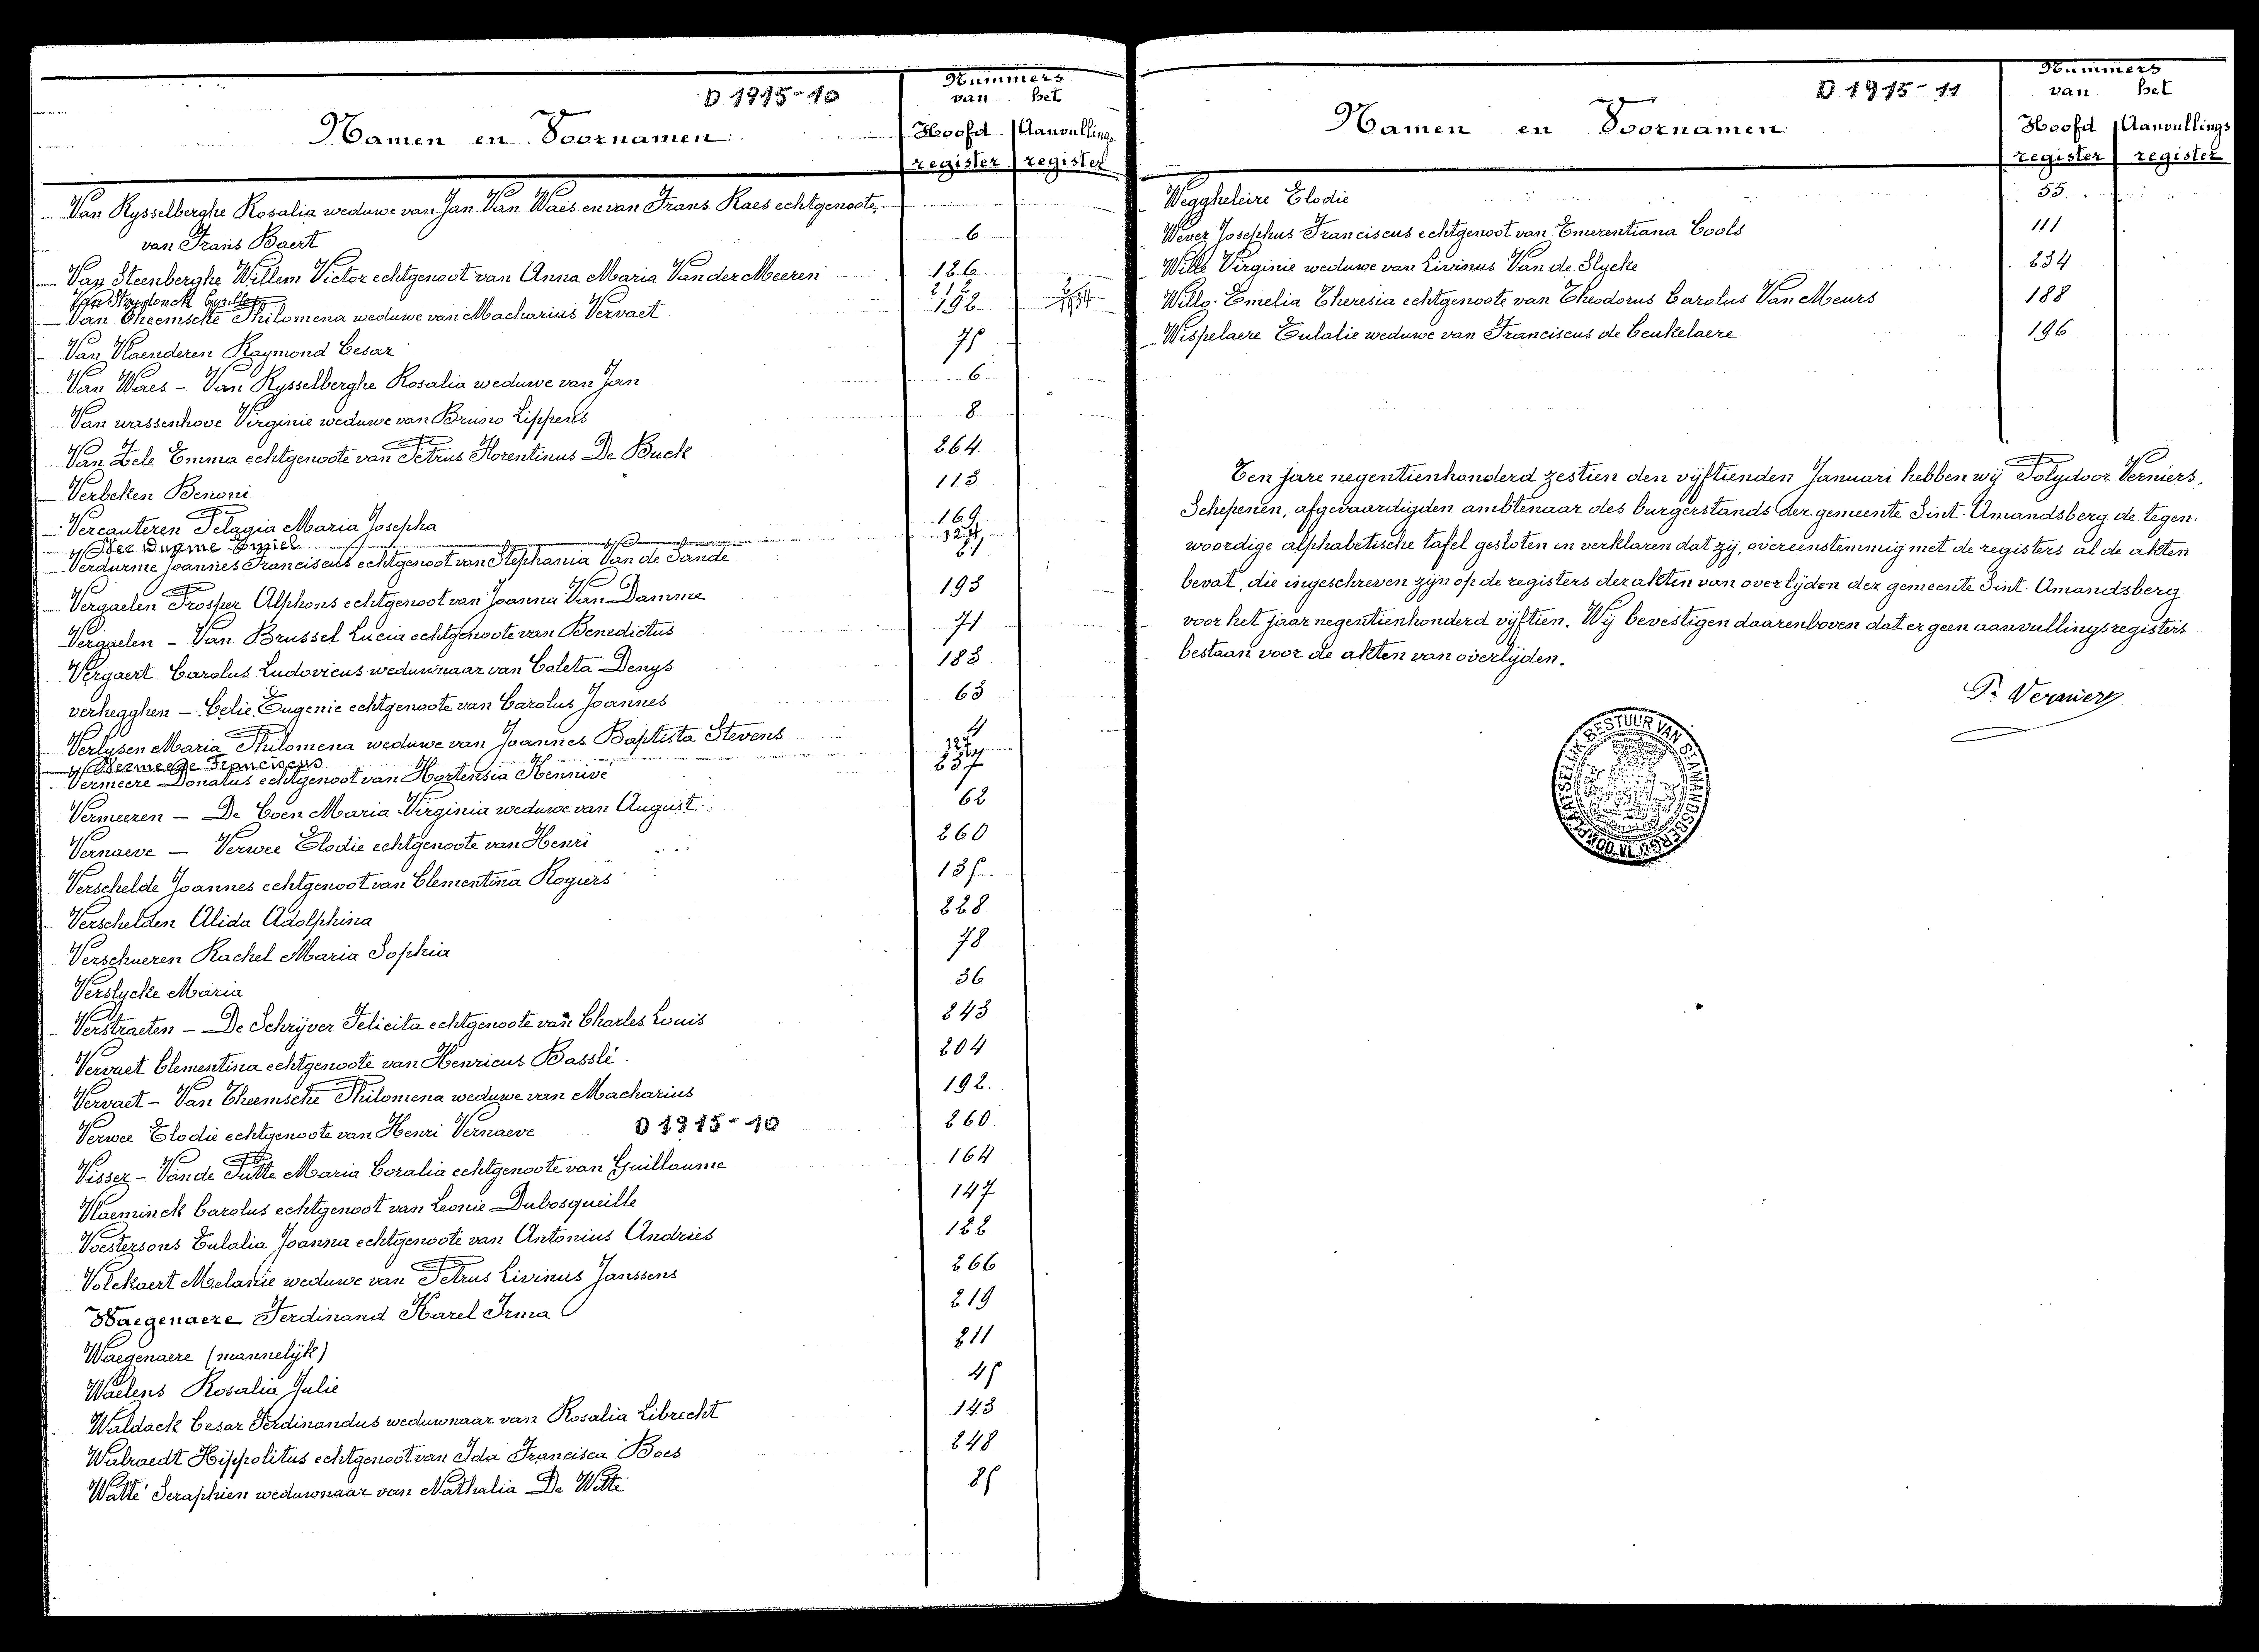 D 1915-10
Namen en Voornamen
Nummers
van het
Hoofd Aanvullings
register register
Van Rysselberghe Rosalia weduwe van Jan Van Waes en van Frans Raes echtgenoote
van Frans Baert 6
Van Steenberghe Willem Victor echtgenoot van Anna Maria Van der Meeren 126
212
Van Theemsche Philomena weduwe van Macharius Vervaet 192
Van Vlaenderen Raymond Cesar 75
Van Waes - Van Rysselberghe Rosalia weduwe van Jan 6
Van wassenhove Virginie weduwe van Bruno Lippens 8
Van Zele Emma echtgenoote van Petrus Florentinus De Buck 264
Verbeken Benoni 113
Vercauteren Pelagia Maria Josepha 169
Ver Durme Emiel
Verdurme Joannes Franciscus echtgenoot van Stephania Van de Sande
Vergaelen Prosper Alphons echtgenoot van Joanna Van Damme 193
Vergaelen - Van Brussel Lucia echtgenoote van Benedictus 71
Vergaert Carolus Ludovicus weduwnaar van Coleta Denys 183
verhegghen - Celie Eugenie echtgenoote van Carolus Joannes 63
Verlysen Maria Philomena weduwe van Joannes Baptista Stevens 4
Vermeere Franciscus
Vermeere Donatus echtgenoot van Hortensia Hennivé 257
Vermeeren - De Coen Maria Virginia weduwe van August 62
Vernaeve - Verwee Elodie echtgenoote van Henri 260
Verschelde Joannes echtgenoot van Clementina Rogiers 135
Verschelden Alida Adolphina 228
Verschueren Rachel Maria Sophia 78
Verslycke Maria 36
Verstraeten - De Schrijver Felicita echtgenoote van Charles Louis 243
Vervaet Clementina echtgenoote van Henricus Basslé 204
Vervaet - Van Theemsche Philomena weduwe van Macharius 192.
Verwee Elodie echtgenoote van Henri Vernaeve D 1915-10 260
Visser - Van de Putte Maria Coralia echtgenoote van Guillaume 164
Vlaeminck Carolus echtgenoot van Leonie Dubosqueille 147
Voestersons Eulalia Joanna echtgenoote van Antonius Andries 122
Volckaert Melanie weduwe van Petrus Livinus Janssens 266
Waegenaere Ferdinand Karel Irma 219
Waegenaere (mannelijk) 211
Waelens Rosalia Julie 45
Waldack Cesar Ferdinandus weduwnaar van Rosalia Librecht 143
Walraedt Hippolitus echtgenoot van Ida Francisca Boes 248
Watté Seraphien weduwnaar van Nathalia De Witte 85
D 1915-11
Namen en Voornamen
Nummers
van het
Hoofd Aanvullings
register register
Weggheleire Elodie 55
Wever Josephus Franciscus echtgenoot van Emerentiana Cools 111
Wille Virginie weduwe van Livinus Van de Slycke 234
Wille Emelia Theresia echtgenoote van Theodorus Carolus Van Meurs 188
Wispelaere Eulalie weduwe van Franciscus de Ceukelaere 196
Ten jare negentienhonderd zestien den vijftienden Januari hebben wij Polydoor Verniers,
Schepenen, afgevaardigden ambtenaar des burgerstands der gemeente Sint-Amandsberg de tegen-
woordige alphabetische tafel gesloten en verklaren dat zij, overeenstemmig met de registers al de akten
bevat, die ingeschreven zijn op de registers der akten van overlijden der gemeente Sint-Amandsberg
voor het jaar negentienhonderd vijftien. Wij bevestigen daarenboven dat er geen aanvullingsregisters
bestaan voor de akten van overlijden.
P. Verniers
PLAATSELIJK BESTUUR VAN ST AMANDSBERG